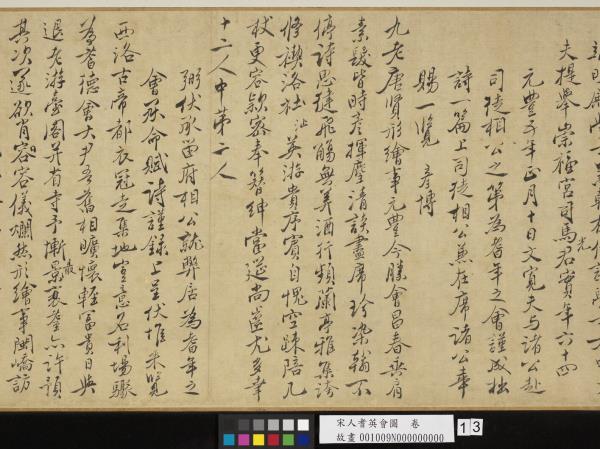 夫提舉崇福宮司馬光君實年六十四
元豐五年正月十日文寬夫与諸公赴
司徒相公之第為耆年之會謹成拙
詩一篇上司徒相公兼在席諸公奉
賜一覽　彥博
九老唐賢形繪事元豐今勝會昌春垂肩
素髮皆時彥揮麈清談盡席珍染翰不
停詩思健飛觴無算酒行頻蘭亭雅集誇
修禊洛社英游貴序賓自愧空疎陪几
杖更容款密奉簪紳當筵尚齒尤多幸
十二人中第二人
弼伏承留府相公就弊居為耆年之
會承命賦詩謹錄上呈伏惟采覽
西洛古帝都衣冠走集地豈意名利場驟
為耆德會大尹吾舊相曠懷輕富貴日與
退老游臺閣并省寺予慚最衰老亦許預
其次遂欲肖容儀爛然形繪事閩嶠訪
宋人耆英會圖　卷
故畫001009N000000000
13